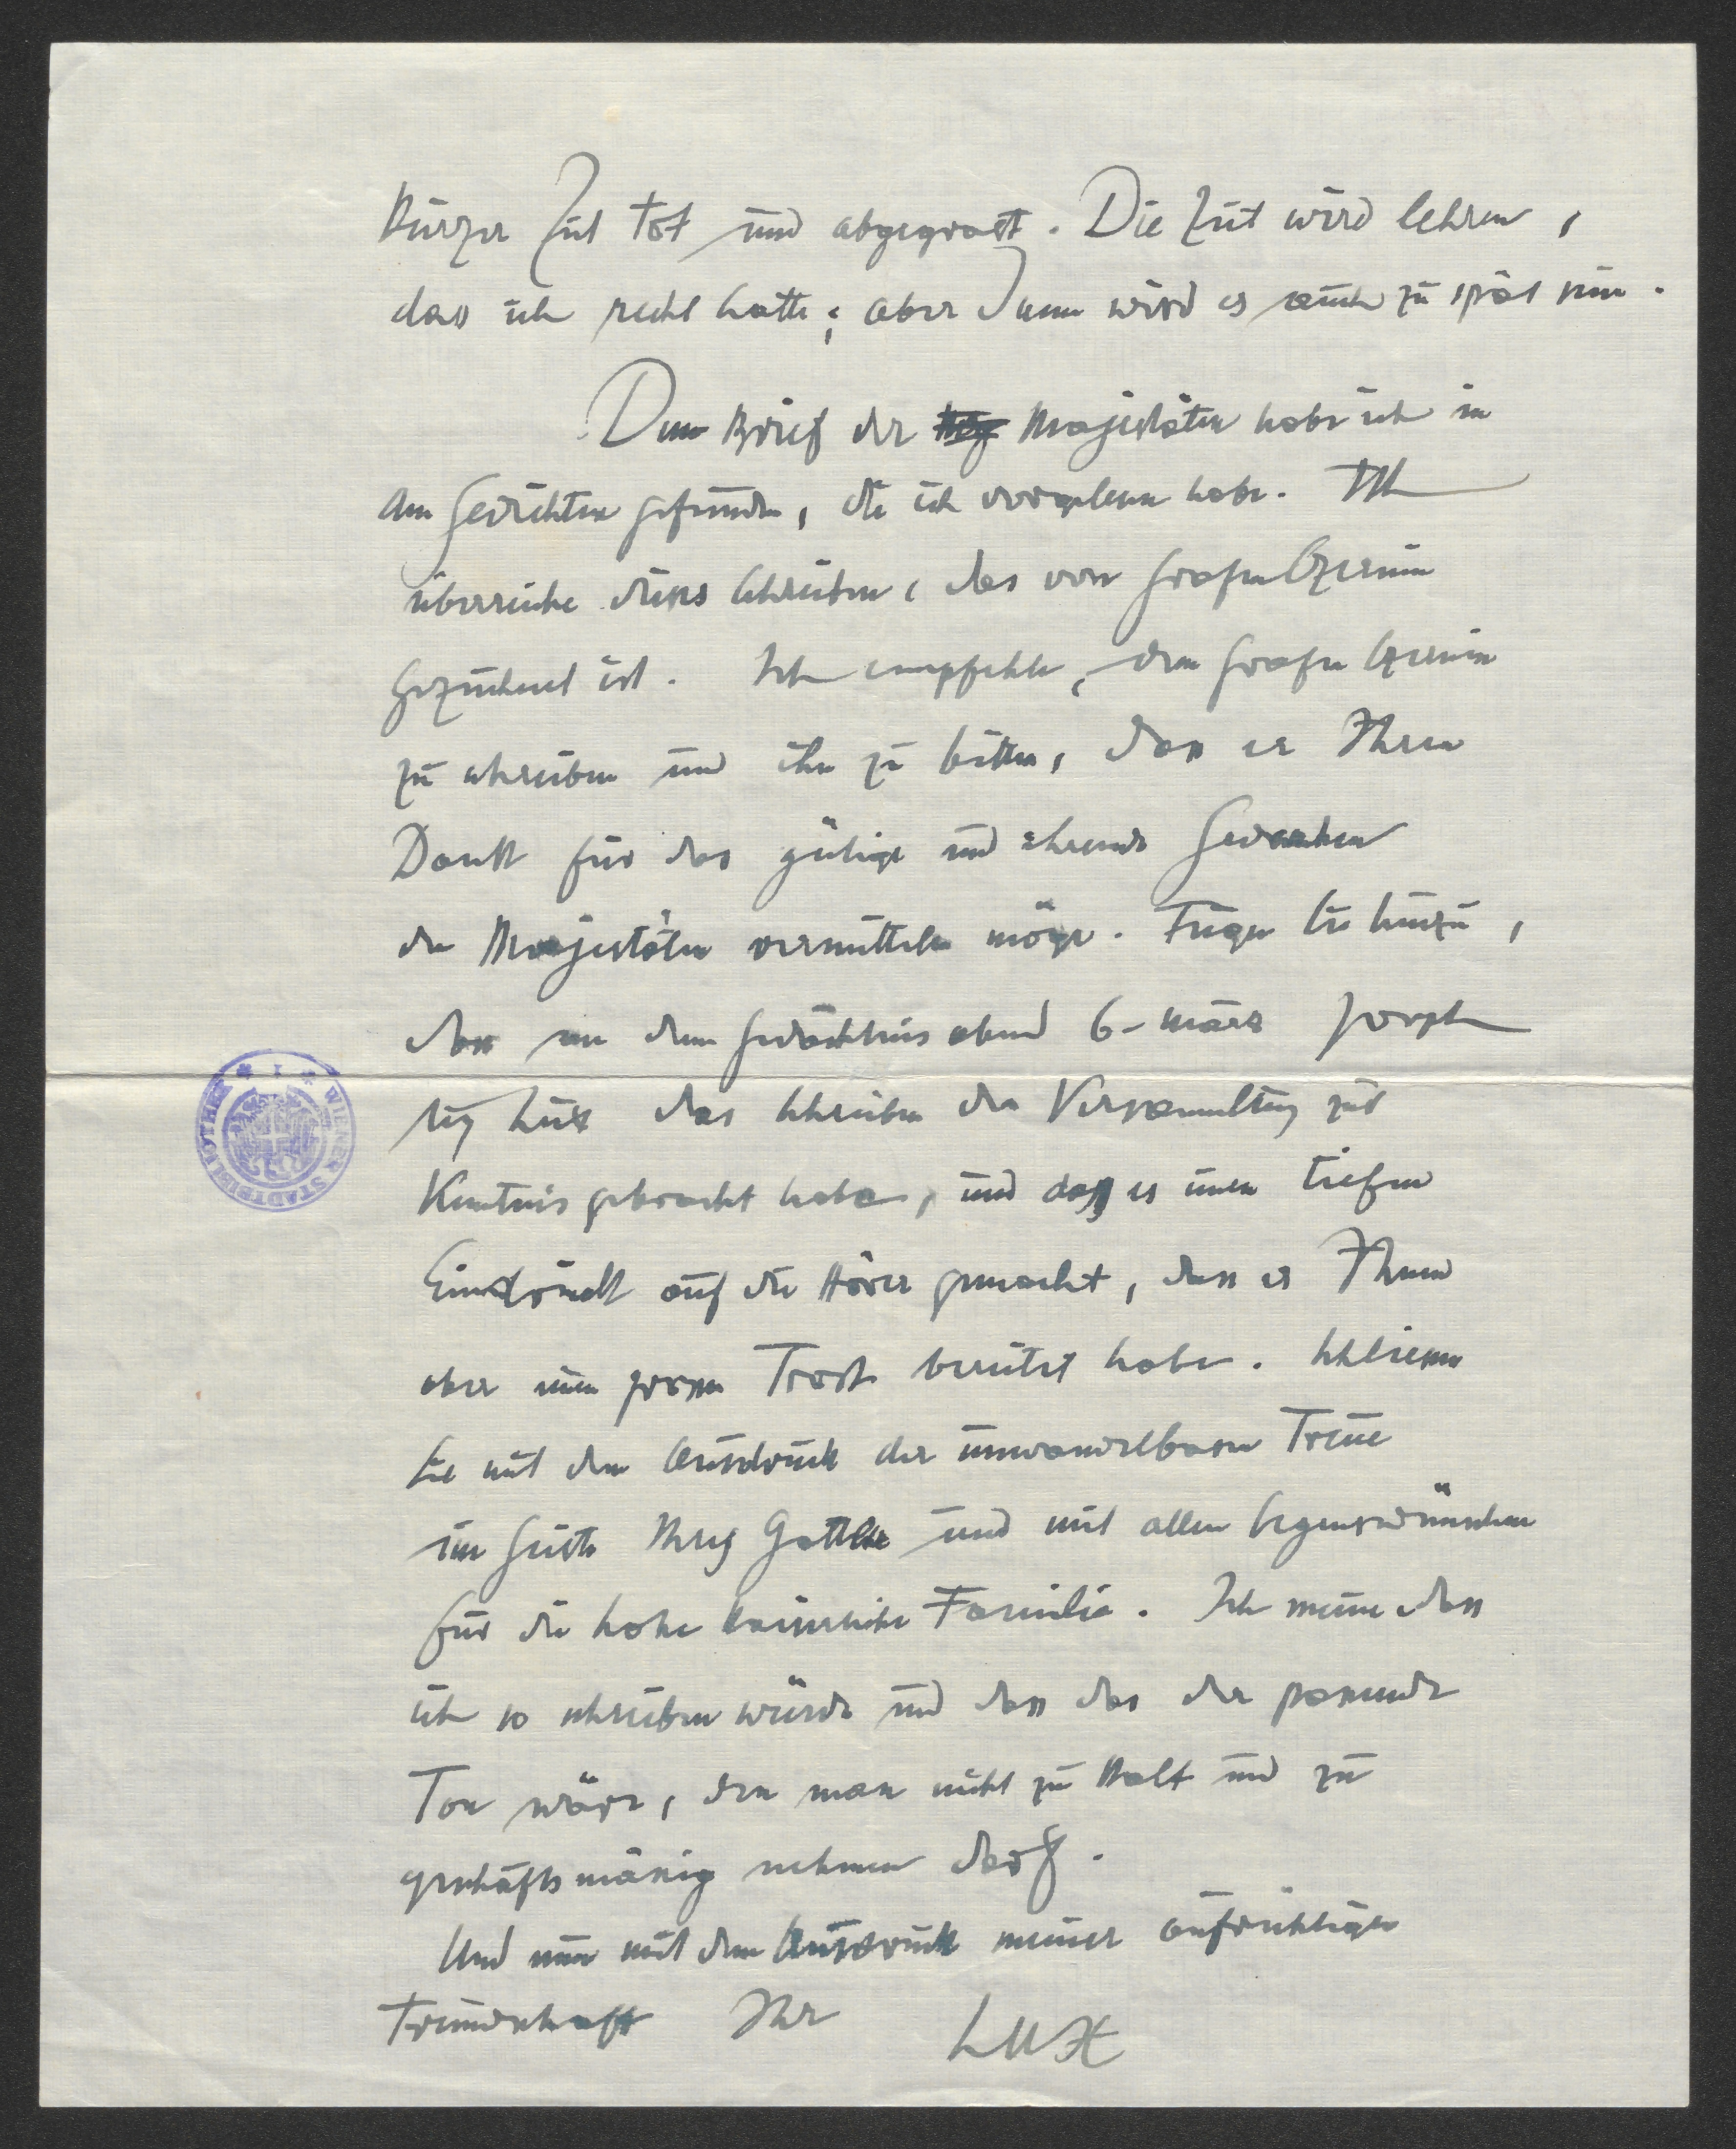 kurzer Zeit tot und abgegrast. Die Zeit wird lehren,
dass ich recht hatte; aber dann wird es auch zu spät sein.
Den Brief der Majestäten habe ich in
den Gedichten gefunden, die ich vorgelesen habe. Ich
überreiche dieses Schreiben, das von Grafen Czernin
gezeichnet ist. Ich empfehle, dem Grafen Czernin
zu schreiben und ihn zu bitten, dass er Ihren
Dank für das gütige und ehrende Gedenken
den Majestäten vermitteln möge. Fügen Sie hinzu,
dass an dem Gedächtnisabend 6. März Joseph
Aug Lux das Schreiben der Versammlung zur
Kenntnis gebracht habe, und dass es einen tiefen
Eindruck auf die Hörer gemacht, dass es Ihnen
aber einen grossen Trost bereitet habe. Schliessen
Sie mit dem Ausdruck der unwandelbaren Treue
im Geiste Ihres Gatten und mit allen Segenswünschen
für die hohe kaiserliche Familie. Ich meine dass
ich so schreiben würde und dass das der passende
Ton wäre, den man nicht zu kalt und zu
geschäftsmässig nehmen darf.
Und nun mit dem Ausdruck meiner aufrichtigen
Freundschaft Ihr LUX
WIENER STADTBIBLIOTHEK * I *